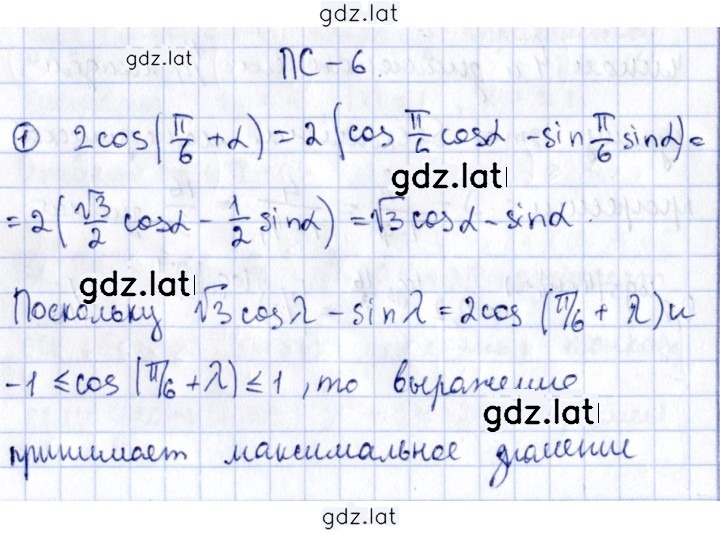 gdz.lat
gdz.lat
ПС-6.
① 2cos(π/6+α)=2(cos π/6 cosα -sin π/6 sinα)=
gdz.lat
=2(√3/2 cosα - 1/2 sinα)=√3cosα-sinα.
gdz.lat
Поскольку √3cosλ-sinλ=2cos(π/6+λ) и
-1≤cos(π/6+λ)≤1, то выражение
gdz.lat
принимает максимальное значение
gdz.lat